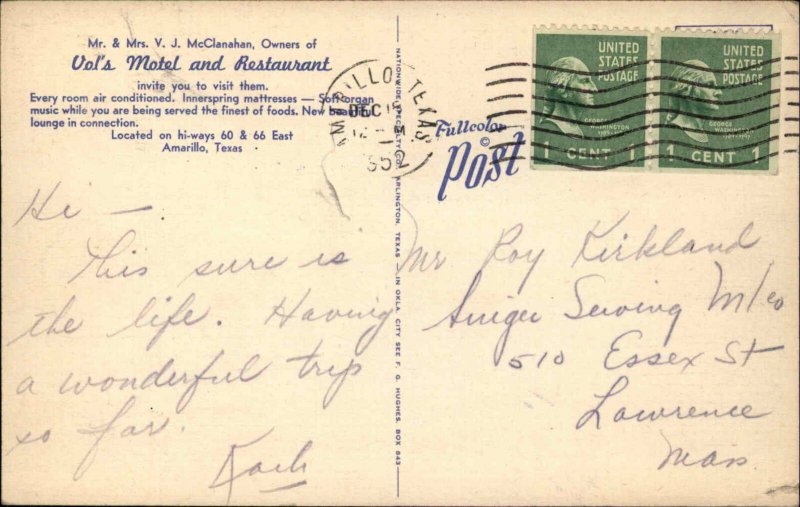 Mr. & Mrs. V. J. McClanahan, Owners of
Vol's Motel and Restaurant
invite you to visit them.
Every room air conditioned. Innerspring mattresses — Soft organ
music while you are being served the finest of foods. New beautiful
lounge in connection.
Located on hi-ways 60 & 66 East
Amarillo, Texas
Hi —
This sure is
the life. Having
a wonderful trip
so far.
NATIONWIDE SPECIALTY CO., ARLINGTON, TEXAS — IN OKLA. CITY SEE F. G. HUGHES, BOX 843
AMARILLO, TEXAS
DEC
Fullcolor
©
Post
UNITED STATES POSTAGE
GEORGE WASHINGTON
1 CENT 1
UNITED STATES POSTAGE
GEORGE WASHINGTON
1 CENT 1
Mr Roy Kirkland
Singer Sewing M/co
510 Essex St
Lawrence
Mass